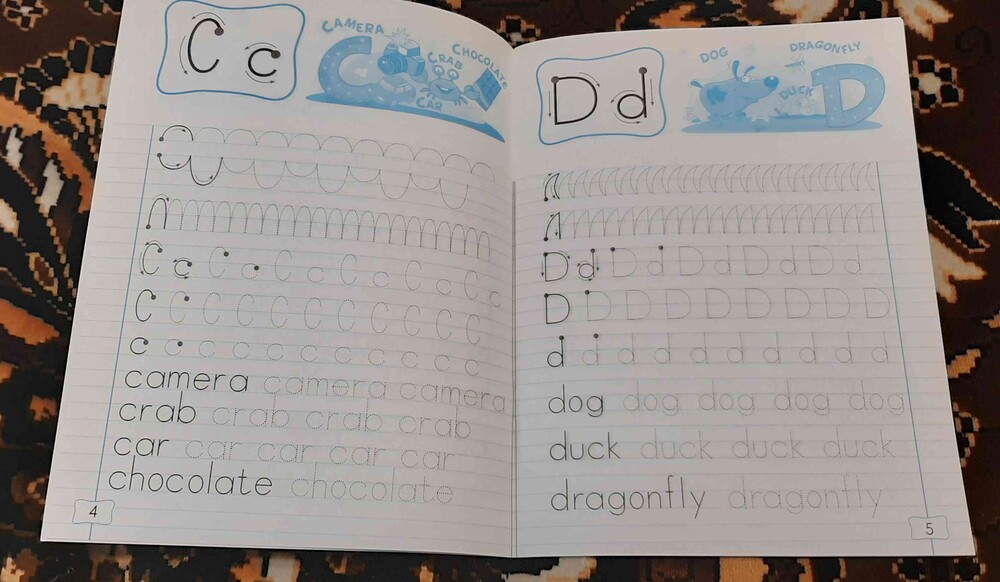 C c
CAMERA
CRAB
CHOCOLATE
CAR
C c C c C c C c C c C c
C C C C C C C C C C C
c c c c c c c c c c c
camera camera camera
crab crab crab crab
car car car car car
chocolate chocolate
4
D d
DOG
DRAGONFLY
DUCK
D
D d D d D d D d D d
D D D D D D D D D
d d d d d d d d d d
dog dog dog dog dog
duck duck duck duck
dragonfly dragonfly
5